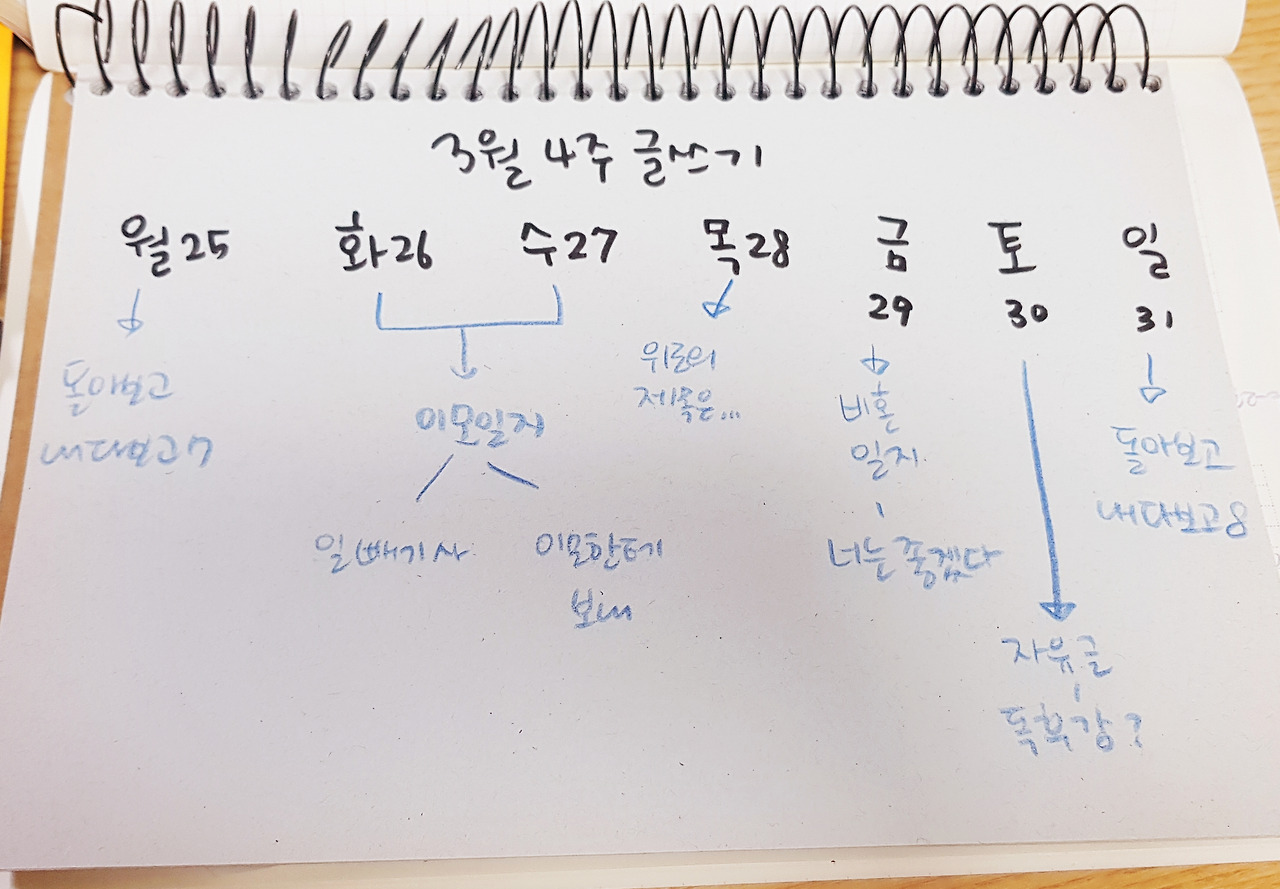 3월 4주 글쓰기
월25 화26 수27 목28 금 토 일
29 30 31
돌아보고
내다보고7
이모일지
일빼기사
이모한테
보내
위로의
제목은...
비혼
일지
너는 좋겠다
자유글
독후감?
돌아보고
내다보고8